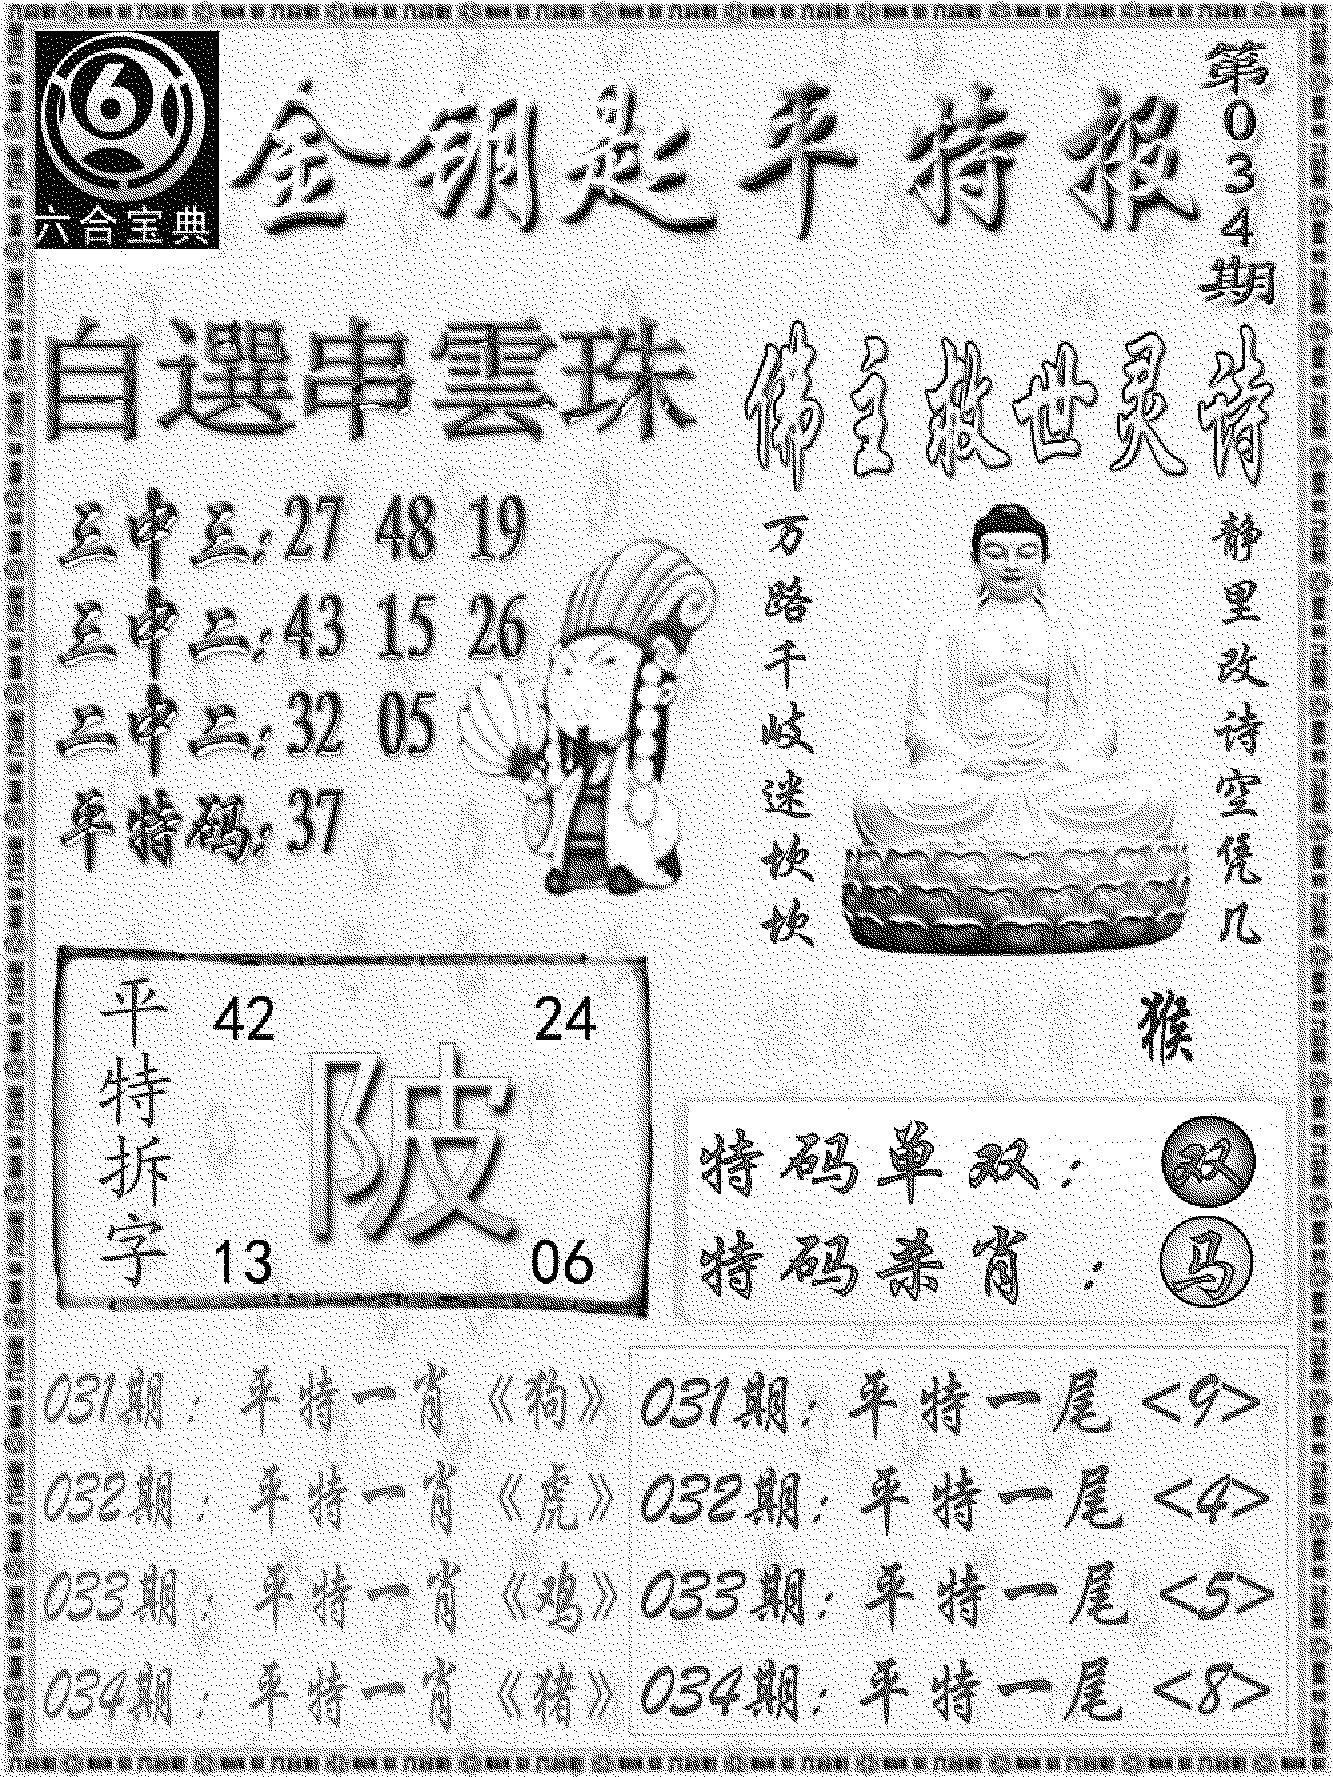 六合宝典
金钥匙平特报
第034期
自選串雲珠
三中三:27 48 19
三中二:43 15 26
二中二:32 05
平特码:37
佛主救世灵诗
静里改诗空凭几
万路千岐迷坎坎
猴
平特拆字
42 24
陂
13 06
特码单双:双
特码杀肖:马
031期:平特一肖《狗》
032期:平特一肖《虎》
033期:平特一肖《鸡》
034期:平特一肖《猪》
031期:平特一尾<9>
032期:平特一尾<4>
033期:平特一尾<5>
034期:平特一尾<8>